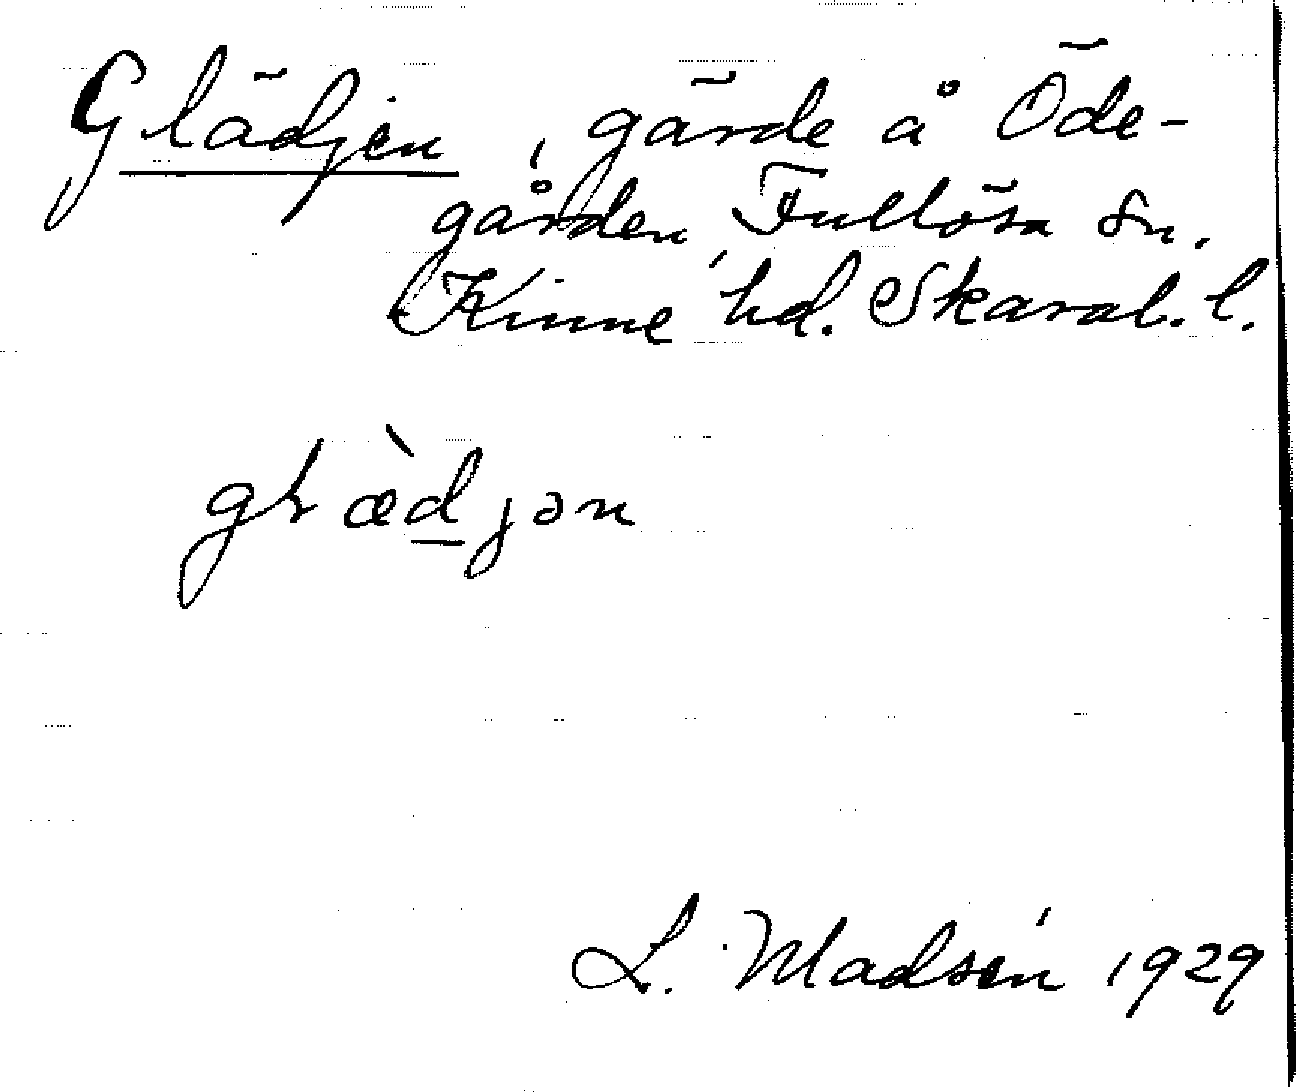 Glädjen, gärde å Öde-
gården, Fullösa sn.
Kinne hd. Skarab. l.
głæ̀d̲jən
L. Madsén 1929